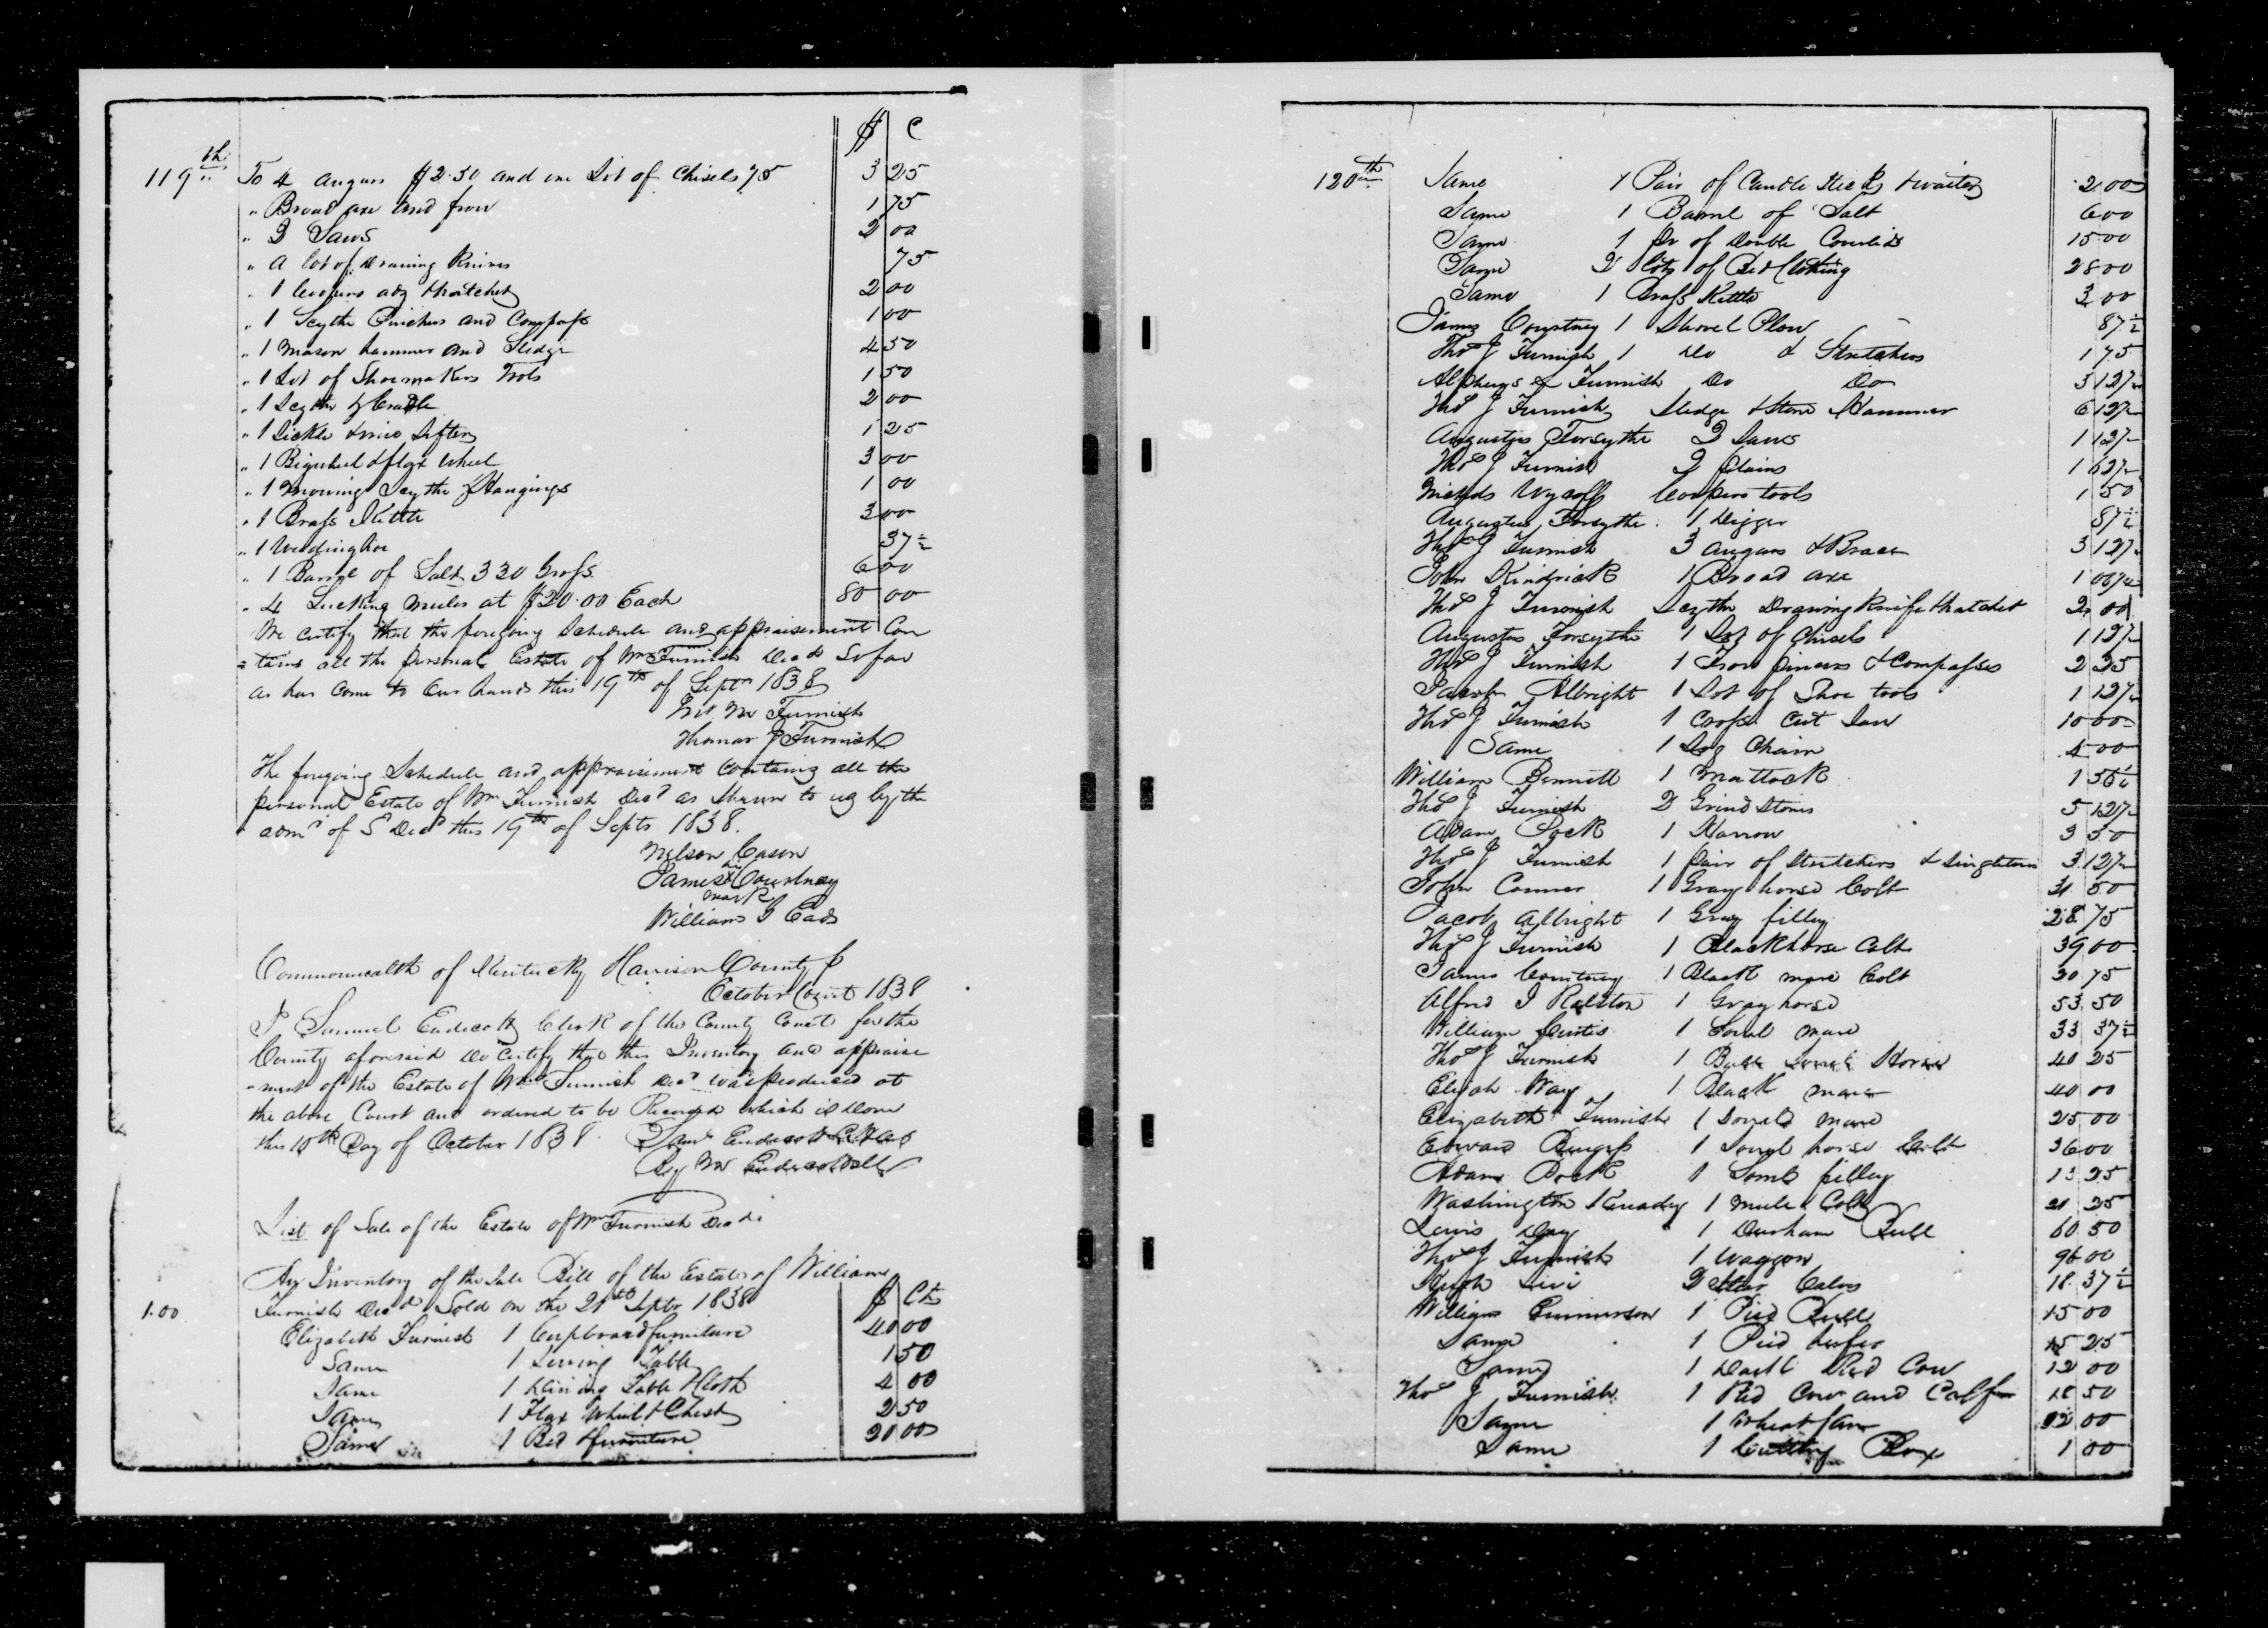 $ C
119th To 4 augurs $2.50 and one Lot of Chisels 75 3 25
" Broad axe and frow 1 75
" 2 Saws 2 00
" A lot of Drawing Knives 75
" 1 Coopers adz & hatchet 2 00
" 1 Scythe Pinchers and Compass 1 00
" 1 Mason hammer and Sledge 4 50
" 1 Lot of Shoemakers Tools 1 50
" 1 Scythe & Cradle 2 00
" 1 Sickle & wire Sifter 1 25
" 1 Bigwheel & flax wheel 3 00
" 1 Mowing Scythe & Hangings 1 00
" 1 Brass Kettle 3 00
" 1 Weeding hoe 37 ½
" 1 Barrel of Salt 330 Gross 6 00
" 4 Sucking mules at $20.00 Each 80 00
We certify that the foregoing Schedule and appraisement Con
=tains all the personal Estate of Wm Furnish Decd So far
as has Come to Our hands this 19th of Septr 1838
Furnish
Thomas J Furnish
The foregoing Schedule and appraisement Containg all the
personal Estate of Wm Furnish Decd as Shewn to us by the
admrs of Sd Decd this 19th of Septr 1838.
Nelson Cason
James X Courtney
mark
William G Eads
Commonwealth of Kentucky Harrison County
October Court 1838
I Samuel Endecott Clerk of the County Court for the
County aforesaid do certify that this Inventory and appraise
=ment of the Estate of Wm Furnish Decd was produced at
the above Court and ordered to be Recorded which is done
this 10th Day of October 1838. Saml Endecott
By Endecott
List of Sale of the Estate of Wm Furnish Decd.
An Inventory of the Sale Bill of the Estate of William
1.00 Furnish Decd Sold on the 21st Septr 1838 $ Cts
Elizabeth Furnish 1 Cupboard furniture 40 00
Same 1 Table 1 50
Same 1 Dining Table & Cloth 4 00
Same 1 Flax Wheel & Chest 2 50
Same 1 Bed & furniture 20 00
120th Same 1 Pair of Candle Sticks & waiter 2 00
Same 1 Barrel of Salt 6 00
Same 1 Pr of Double Coverlids 15 00
Same 2 lots of Bed Clothing 28 00
Same 1 Brass Kettle 3 00
James Courtney 1 Shovel Plow 87 ½
Thos J Furnish 1 Do & Stretchers 1 75
Alpheus Furnish Do Do 3 12 ½
Thos J Furnish Sledge & Stone Hammer 6 12 ½
Augustus Forsythe 2 Saws 1 12 ½
Thos J Furnish 2 plains 1 62 ½
Wycoff Coopers tools 1 50
Augustus Forsythe 1 Digger 87 ½
Thos J Furnish 3 augurs & Brace 3 12 ½
John Kindrick 1 Broad axe 1 06 ¼
Thos J Furnish Scythe Drawing Knife & hatchet 2 00
Augustus Forsythe 1 Lot of Chisels 1 12 ½
Thos J Furnish 1 Frow pincers & Compasses 2 25
Jacob Albright 1 Lot of Shoe tools 1 12 ½
Thos J Furnish 1 Cross Cut Saw 10 00
Same 1 Log Chain 4 00
William Bennett 1 Mattock 1 56 ¼
Thos J Furnish 2 Grind Stones 5 12 ½
Adam 1 Harrow 3 50
Thos J Furnish 1 pair of Stretchers & Singletrees 3 12 ½
John Conner 1 Gray horse Colt 31 50
Jacob Albright 1 Gray filley 28 75
Thos J Furnish 1 Black horse Colt 39 00
James Courtney 1 Black mare Colt 30 75
Alfred I Ralston 1 Gray horse 53 50
William Curtis 1 Sorrel mare 33 37 ½
Thos J Furnish 1 Sorrel Horse 40 25
Elijah Way 1 Black mare 40 00
Elizabeth Furnish 1 Sorrel mare 25 00
Edward Burgess 1 Sorrel horse Colt 36 00
Adam 1 Sorrel filley 13 25
Washington Kenaday 1 Mule Colt 21 25
Lewis Day 1 Durham Bull 60 50
Thos J Furnish 1 Waggon 96 00
Hugh 2 Calves 18 37 ½
William 1 Pied Bull 15 00
Same 1 Pied heifer 15 25
Same 1 Dark Red Cow 12 00
Thos J Furnish 1 Red Cow and Calf 18 50
Same 1 Wheat fan 12 00
Same 1 Cutting Box 1 00